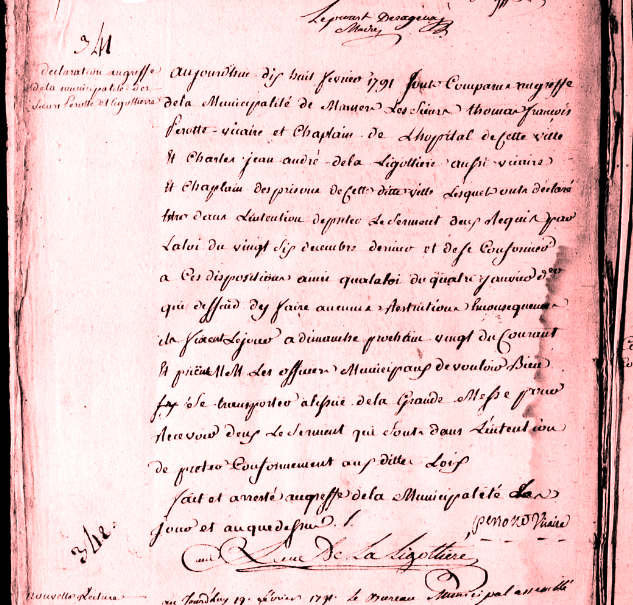 Leprevost Desagenau
Maire
341
declaration au greffe
de la municipalité des
Sieurs Perotte et Ligottiere
aujourd'hui dix huit fevrier 1791 sont Comparus au greffe
de la Municipalité de Mamers Les Sieurs thomas françois
Perotte vicaire et Chaplain de Lhopital de Cette ville
Et Charles jean andré de la Ligottiere aussi vicaire
Et Chaplain des prisons de Cette ditte ville Lesquels ont déclaré
être dans Lintention de preter Le Serment d'eux Requis par
La loi du vingt six decembre dernier et de se Conformer
a Ces dispositions ainsi qua la loi du quatre janvier
qui deffend d'y faire aucunes Restrictions En consequence
ils fixent Le jour a dimanche prochain vingt du Courant
Et prient MM Les officiers Municipaux de vouloir Bien
se transporter a lissue de la Grande Messe pour
Recevoir d'eux Le Serment qui sont dans Lintention
de preter Conformement aux dittes Lois
fait et arresté au greffe de la Municipalité Les
Jour et an que dessus /.
perotte Vicaire
De La Ligottiere
342
nouvelle Lecture
au jourdhuy 19 fevrier 1791 Le Bureau Municipal assemblé